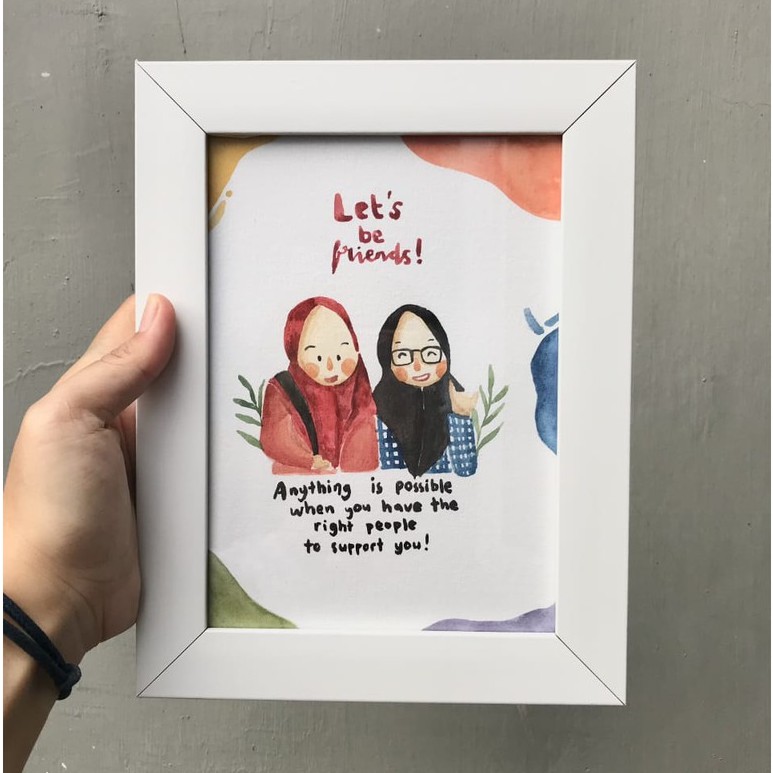 Let's
be
friends!
Anything is possible
when you have the
right people
to support you!